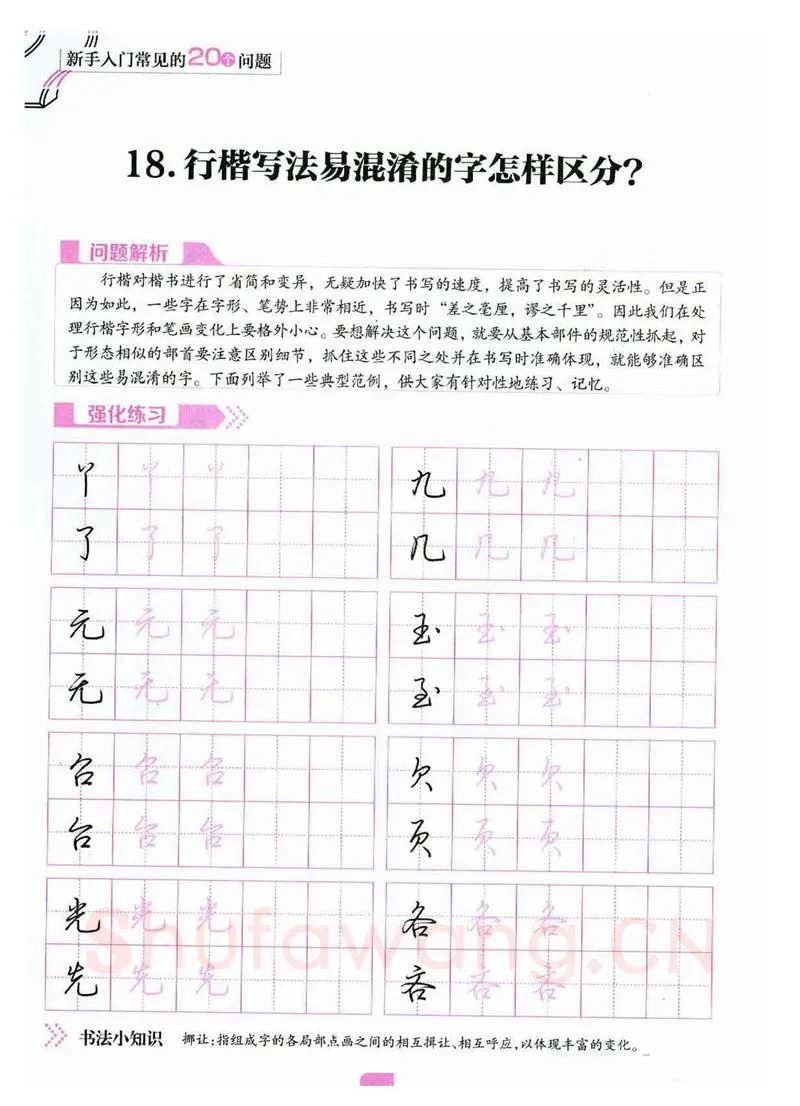 新手入门常见的20个问题
18.行楷写法易混淆的字怎样区分?
问题解析
行楷对楷书进行了省简和变异，无疑加快了书写的速度，提高了书写的灵活性。但是正
因为如此，一些字在字形、笔势上非常相近，书写时“差之毫厘，谬之千里”。因此我们在处
理行楷字形和笔画变化上要格外小心。要想解决这个问题，就要从基本部件的规范性抓起，对
于形态相似的部首要注意区别细节，抓住这些不同之处并在书写时准确体现，就能够准确区
别这些易混淆的字。下面列举了一些典型范例，供大家有针对性地练习、记忆。
强化练习
丫 丫 丫
了 了 了
九 九 九
几 几 几
元 元 元
无 无 无
玉 玉 玉
至 至 至
召 召 召
台 台 台
欠 欠 欠
页 页 页
光 光 光
先 先 先
各 各 各
吝 吝 吝
Shufawang.CN
书法小知识 挪让:指组成字的各局部点画之间的相互揖让、相互呼应,以体现丰富的变化。